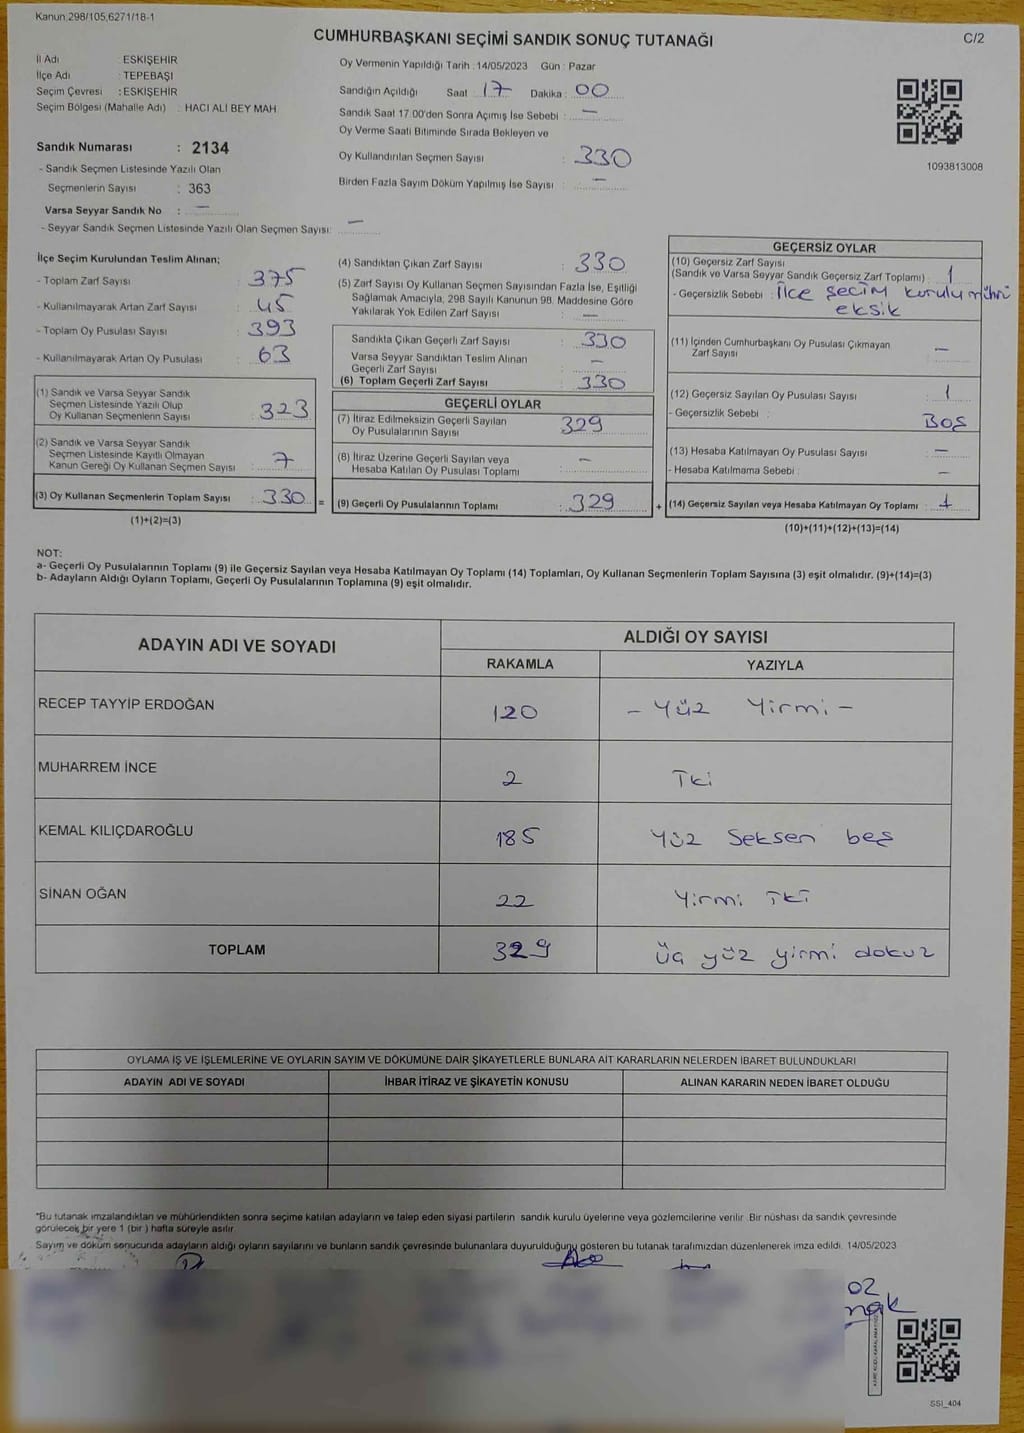 Kanun:298/105,6271/18-1
CUMHURBAŞKANI SEÇİMİ SANDIK SONUÇ TUTANAĞI
C/2
İl Adı : ESKİŞEHİR
İlçe Adı : TEPEBAŞI
Seçim Çevresi : ESKİŞEHİR
Seçim Bölgesi (Mahalle Adı) : HACI ALİ BEY MAH.
Sandık Numarası : 2134
- Sandık Seçmen Listesinde Yazılı Olan
Seçmenlerin Sayısı : 363
Varsa Seyyar Sandık No : —
- Seyyar Sandık Seçmen Listesinde Yazılı Olan Seçmen Sayısı: —
Oy Vermenin Yapıldığı Tarih : 14/05/2023 Gün : Pazar
Sandığın Açıldığı Saat : 17 Dakika : 00
Sandık Saat 17:00'den Sonra Açımış İse Sebebi : —
Oy Verme Saati Bitiminde Sırada Bekleyen ve
Oy Kullandırılan Seçmen Sayısı : 330
Birden Fazla Sayım Döküm Yapılmış İse Sayısı : —
1093813008
İlçe Seçim Kurulundan Teslim Alınan;
- Toplam Zarf Sayısı : 375
- Kullanılmayarak Artan Zarf Sayısı : 45
- Toplam Oy Pusulası Sayısı : 393
- Kullanılmayarak Artan Oy Pusulası : 63
(1) Sandık ve Varsa Seyyar Sandık
Seçmen Listesinde Yazılı Olup
Oy Kullanan Seçmenlerin Sayısı : 323
(2) Sandık ve Varsa Seyyar Sandık
Seçmen Listesinde Kayıtlı Olmayan
Kanun Gereği Oy Kullanan Seçmen Sayısı : 7
(3) Oy Kullanan Seçmenlerin Toplam Sayısı : 330 =
(1)+(2)=(3)
(4) Sandıktan Çıkan Zarf Sayısı : 330
(5) Zarf Sayısı Oy Kullanan Seçmen Sayısından Fazla İse, Eşitliği
Sağlamak Amacıyla, 298 Sayılı Kanunun 98. Maddesine Göre
Yakılarak Yok Edilen Zarf Sayısı : —
Sandıkta Çıkan Geçerli Zarf Sayısı : 330
Varsa Seyyar Sandıktan Teslim Alınan
Geçerli Zarf Sayısı : —
(6) Toplam Geçerli Zarf Sayısı : 330
GEÇERLİ OYLAR
(7) İtiraz Edilmeksizin Geçerli Sayılan
Oy Pusulalarının Sayısı : 329
(8) İtiraz Üzerine Geçerli Sayılan veya
Hesaba Katılan Oy Pusulası Toplamı : —
(9) Geçerli Oy Pusulalarının Toplamı : 329 +
GEÇERSİZ OYLAR
(10) Geçersiz Zarf Sayısı
(Sandık ve Varsa Seyyar Sandık Geçersiz Zarf Toplamı) : 1
- Geçersizlik Sebebi : İlce secim kurulu mühru
eksik
(11) İçinden Cumhurbaşkanı Oy Pusulası Çıkmayan
Zarf Sayısı : —
(12) Geçersiz Sayılan Oy Pusulası Sayısı : 1
- Geçersizlik Sebebi :
Boş
(13) Hesaba Katılmayan Oy Pusulası Sayısı : —
- Hesaba Katılmama Sebebi : —
(14) Geçersiz Sayılan veya Hesaba Katılmayan Oy Toplamı : 1
(10)+(11)+(12)+(13)=(14)
NOT:
a- Geçerli Oy Pusulalarının Toplamı (9) ile Geçersiz Sayılan veya Hesaba Katılmayan Oy Toplamı (14) Toplamları, Oy Kullanan Seçmenlerin Toplam Sayısına (3) eşit olmalıdır. (9)+(14)=(3)
b- Adayların Aldığı Oyların Toplamı, Geçerli Oy Pusulalarının Toplamına (9) eşit olmalıdır.
ADAYIN ADI VE SOYADI ALDIĞI OY SAYISI
RAKAMLA YAZIYLA
RECEP TAYYİP ERDOĞAN 120 - Yüz Yirmi -
MUHARREM İNCE 2 İki
KEMAL KILIÇDAROĞLU 185 Yüz Seksen beş
SİNAN OĞAN 22 Yirmi iki
TOPLAM 329 üç yüz yirmi dokuz
OYLAMA İŞ VE İŞLEMLERİNE VE OYLARIN SAYIM VE DÖKÜMÜNE DAİR ŞİKAYETLERLE BUNLARA AİT KARARLARIN NELERDEN İBARET BULUNDUKLARI
ADAYIN ADI VE SOYADI İHBAR İTİRAZ VE ŞİKAYETİN KONUSU ALINAN KARARIN NEDEN İBARET OLDUĞU
*Bu tutanak imzalandıktan ve mühürlendikten sonra seçime katılan adayların ve talep eden siyasi partilerin sandık kurulu üyelerine veya gözlemcilerine verilir. Bir nüshası da sandık çevresinde
görülecek bir yere 1 (bir ) hafta süreyle asılır.
Sayım ve döküm sonucunda adayların aldığı oyların sayılarını ve bunların sandık çevresinde bulunanlara duyurulduğunu gösteren bu tutanak tarafımızdan düzenlenerek imza edildi. 14/05/2023
02
SSI_404